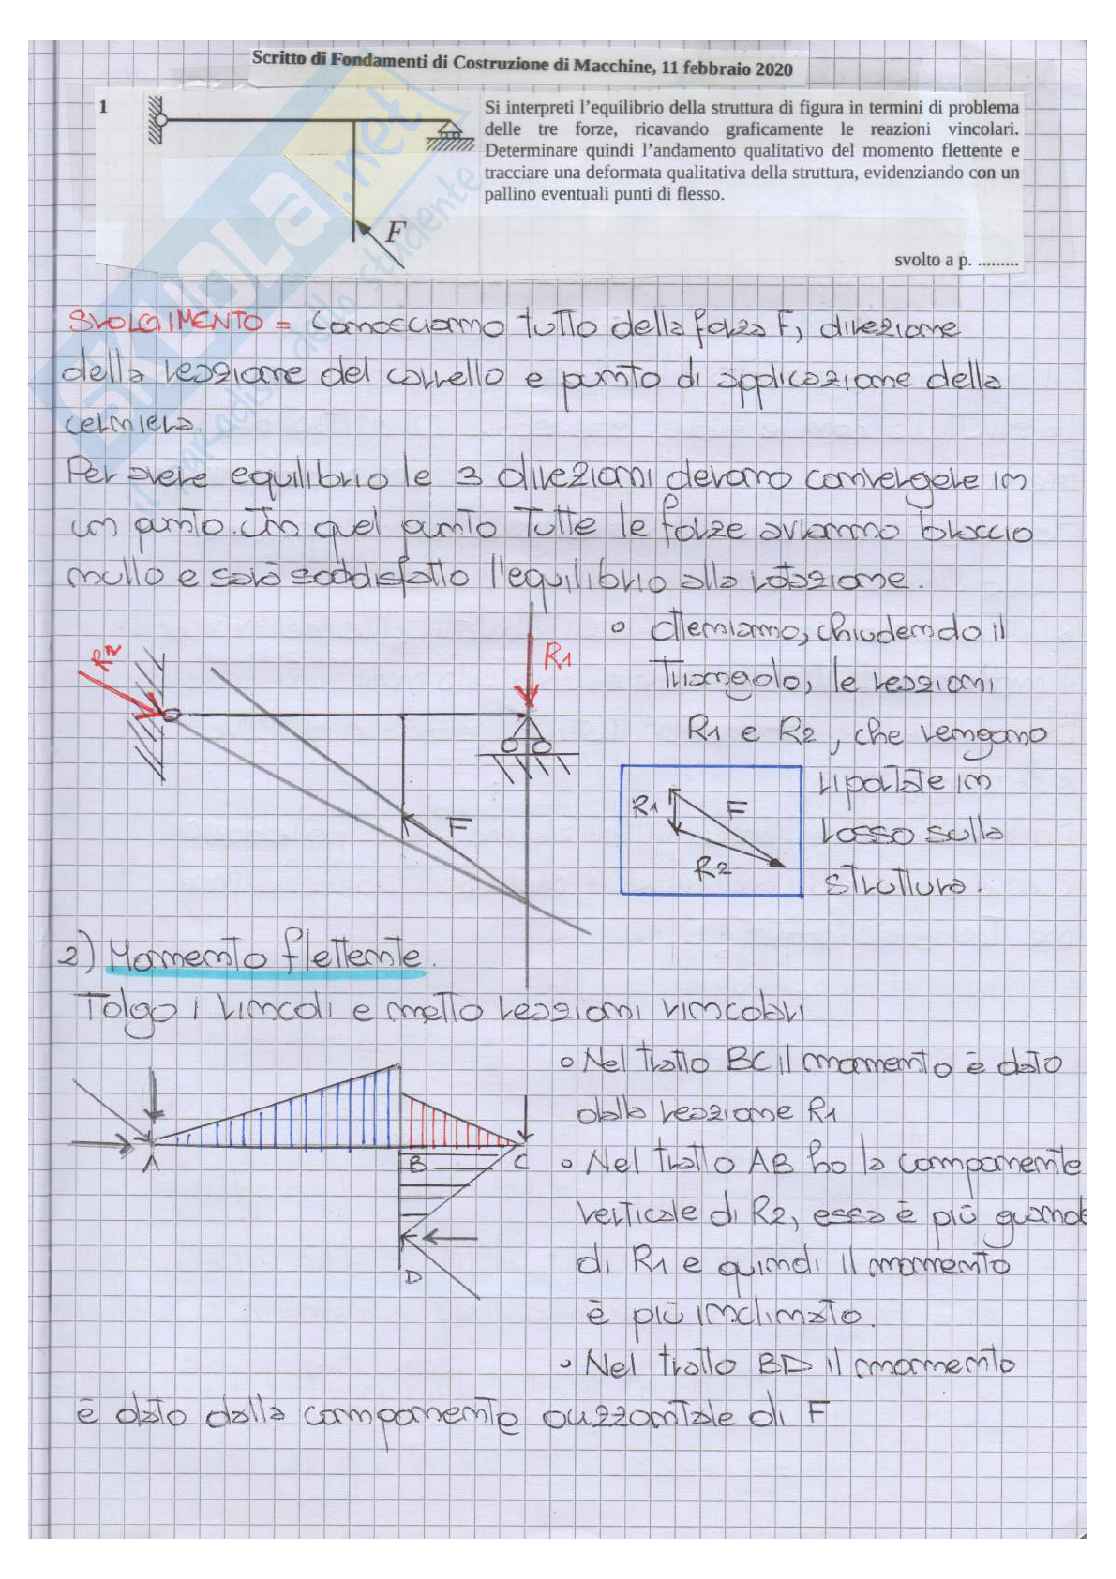 Scritto di Fondamenti di Costruzione di Macchine, 11 febbraio 2020
1
Si interpreti l'equilibrio della struttura di figura in termini di problema
delle tre forze, ricavando graficamente le reazioni vincolari.
Determinare quindi l'andamento qualitativo del momento flettente e
tracciare una deformata qualitativa della struttura, evidenziando con un
pallino eventuali punti di flesso.
F
svolto a p. .........
SVOLGIMENTO = Conosciamo tutto della forza F, direzione
della reazione del carrello e punto di applicazione della
cerniera
Per avere equilibrio le 3 direzioni devono convergere in
un punto. In quel punto tutte le forze avranno braccio
nullo e sarà soddisfatto l'equilibrio alla rotazione.
R2
R1
F
• Otteniamo, chiudendo il
triangolo, le reazioni
R1 e R2, che vengono
riportate in
rosso sulla
struttura.
R1
F
R2
2) Momento flettente.
Tolgo i vincoli e metto reazioni vincolari
A
B
C
D
• Nel tratto BC il momento è dato
dalla reazione R1
• Nel tratto AB ho la componente
verticale di R2, essa è più grande
di R1 e quindi il momento
è più inclinato.
• Nel tratto BD il momento
è dato dalla componente orizzontale di F
SKUOLA.net